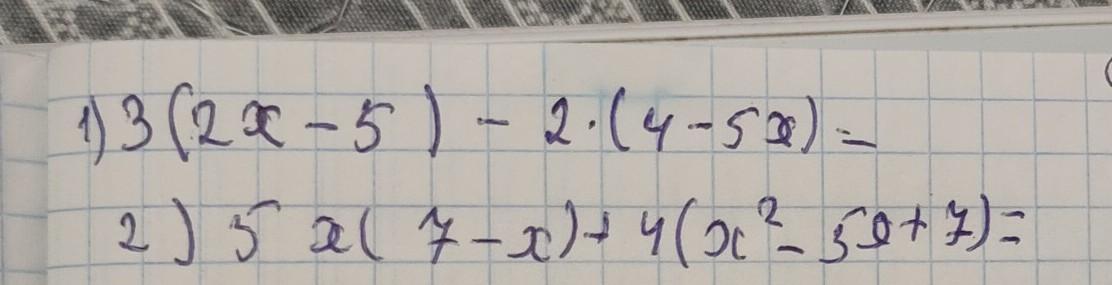 1) 3(2x - 5) - 2·(4 - 5x) =
2) 5x(7 - x) + 4(x² - 5x + 7) =